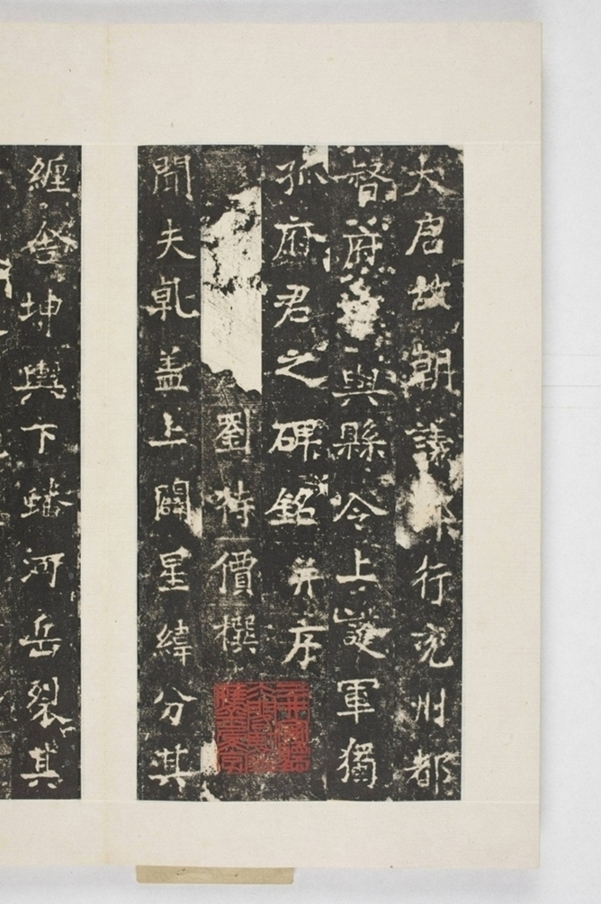 大唐故朝議郎行兖州都
督府與縣令上護軍獨
孤府君之碑銘并序
劉待價撰
聞夫乹盖上闢星緯分其
纏舍坤輿下蟠河岳裂其